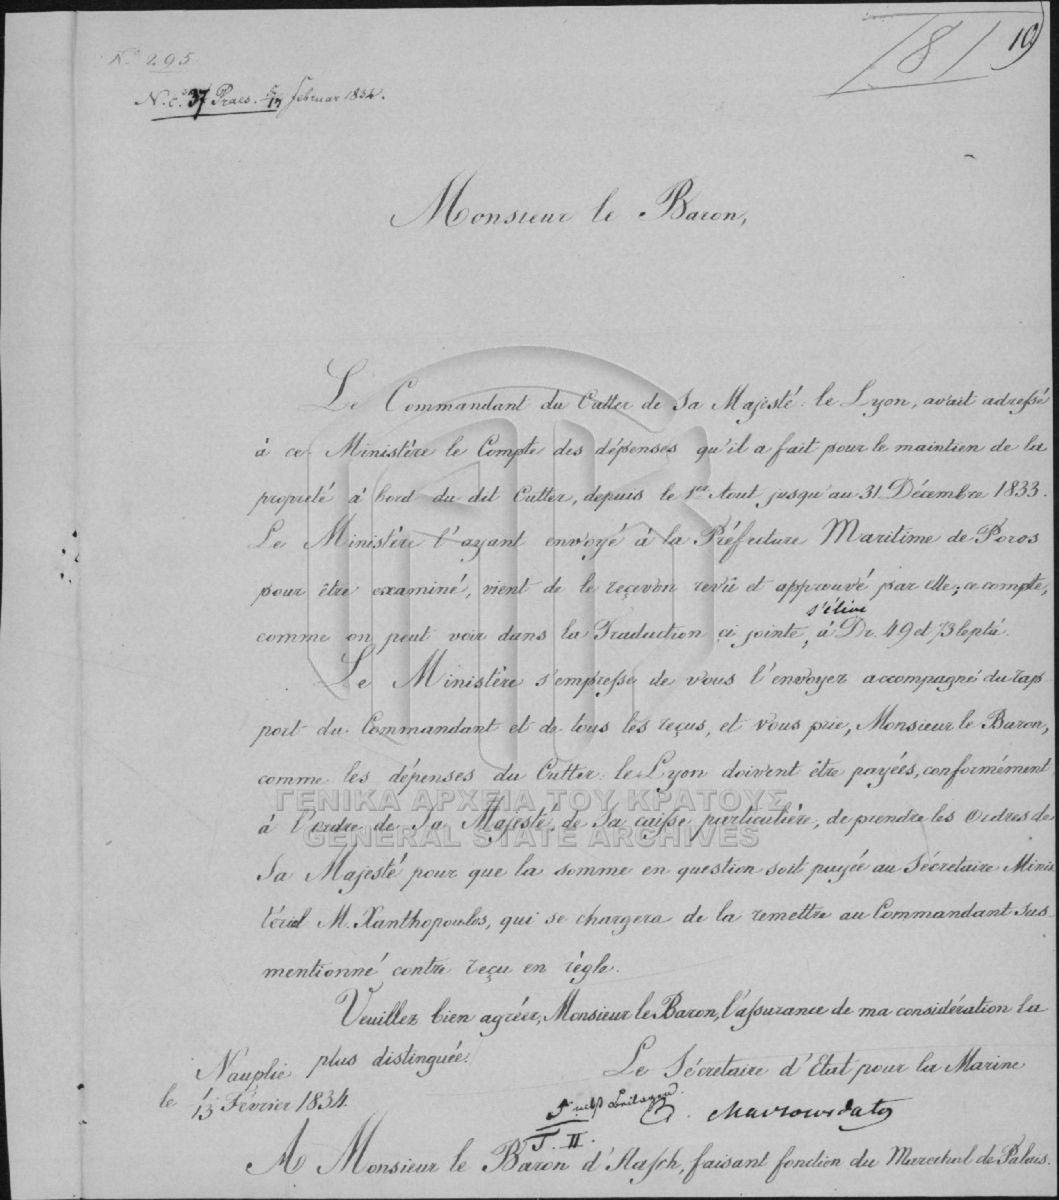 N° 295.
181 19
N.C. 37 Praes. 5/17 Februar 1834.
Monsieur le Baron,
Le Commandant du Cutter de Sa Majesté le Lyon, avait adressé
à ce Ministère le Compte des dépenses qu'il a fait pour le maintien de la
propreté à bord du dit Cutter, depuis le 1er Aout jusqu'au 31 Décembre 1833.
Le Ministère l'ayant envoyé à la Préfecture Maritime de Poros
pour être examiné, vient de le reçevoir revû et approuvé par elle; ce compte,
comme on peut voir dans la Traduction çi jointe, s'élive à Dr. 49 et 73 leptà.
Le Ministère s'empresse de vous l'envoyer accompagné du rap
port du Commandant et de tous les reçus, et Vous prie, Monsieur le Baron,
comme les dépenses du Cutter le Lyon doivent être payées, conformément
à l'ordre de Sa Majesté, de Sa caisse particulière, de prendre les Ordres de
Sa Majesté pour que la somme en question soit payée au Sécretaire Minis
tériel M. Xanthopoulos, qui se chargera de la remettre au Commandant sus
mentionné contre reçu en règle.
Veuillez bien agréer, Monsieur le Baron, l'assurance de ma considération la
plus distinguée.
Nauplie
le 1/13 Février 1834.
Le Sécretaire d'Etat pour la Marine
A. Mavrocordatos
II.
A Monsieur le Baron d'Asch, faisant fonction du Marechal de Palais.
ΓΕΝΙΚΑ ΑΡΧΕΙΑ ΤΟΥ ΚΡΑΤΟΥΣ
GENERAL STATE ARCHIVES